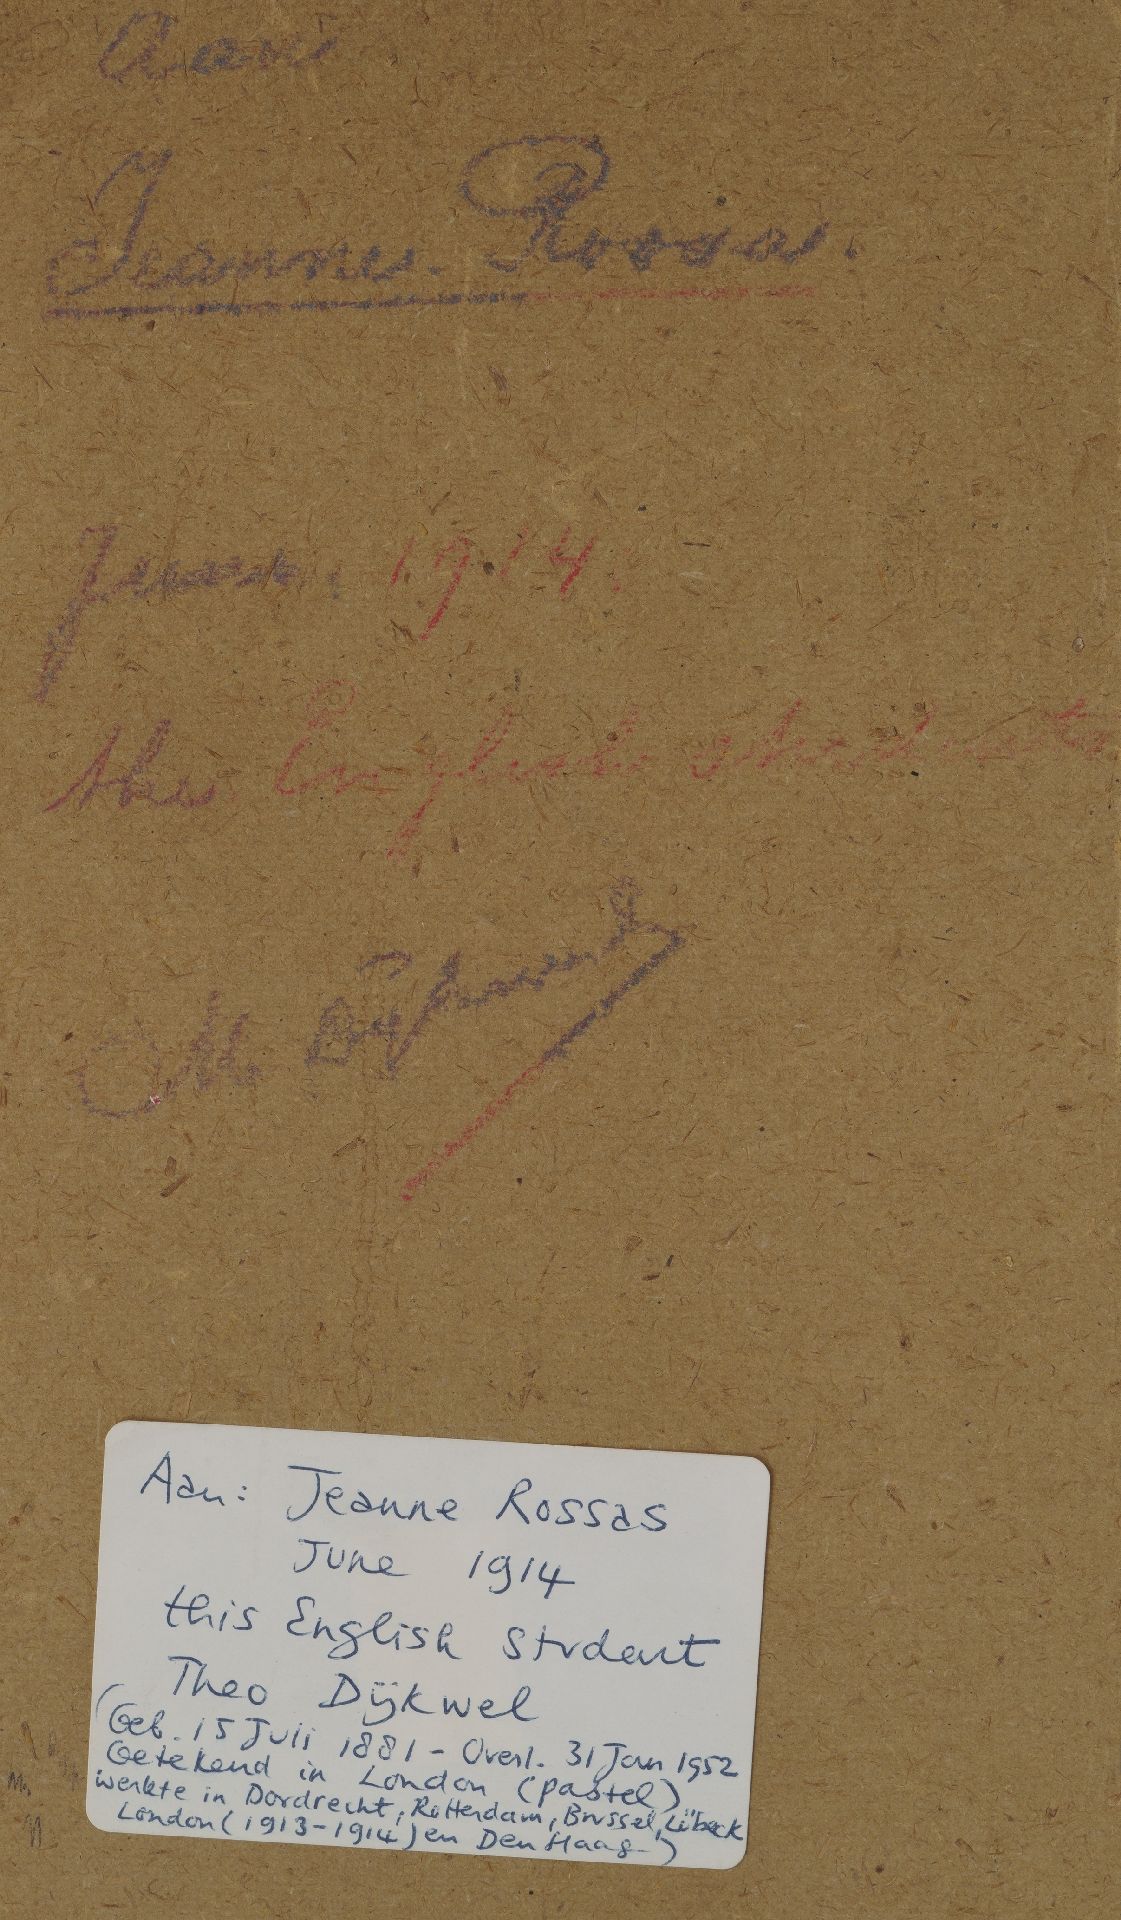 Aan
Jeanne. Rossas.
June. 1914.
the English student
Aan: Jeanne Rossas
June 1914
this English student
Theo Dijkwel
(Geb. 15 Juli 1881 - Overl. 31 Jan 1952
Getekend in London (pastel)
werkte in Dordrecht, Rotterdam, Brussel, Lübeck
London (1913-1914) en Den Haag.)